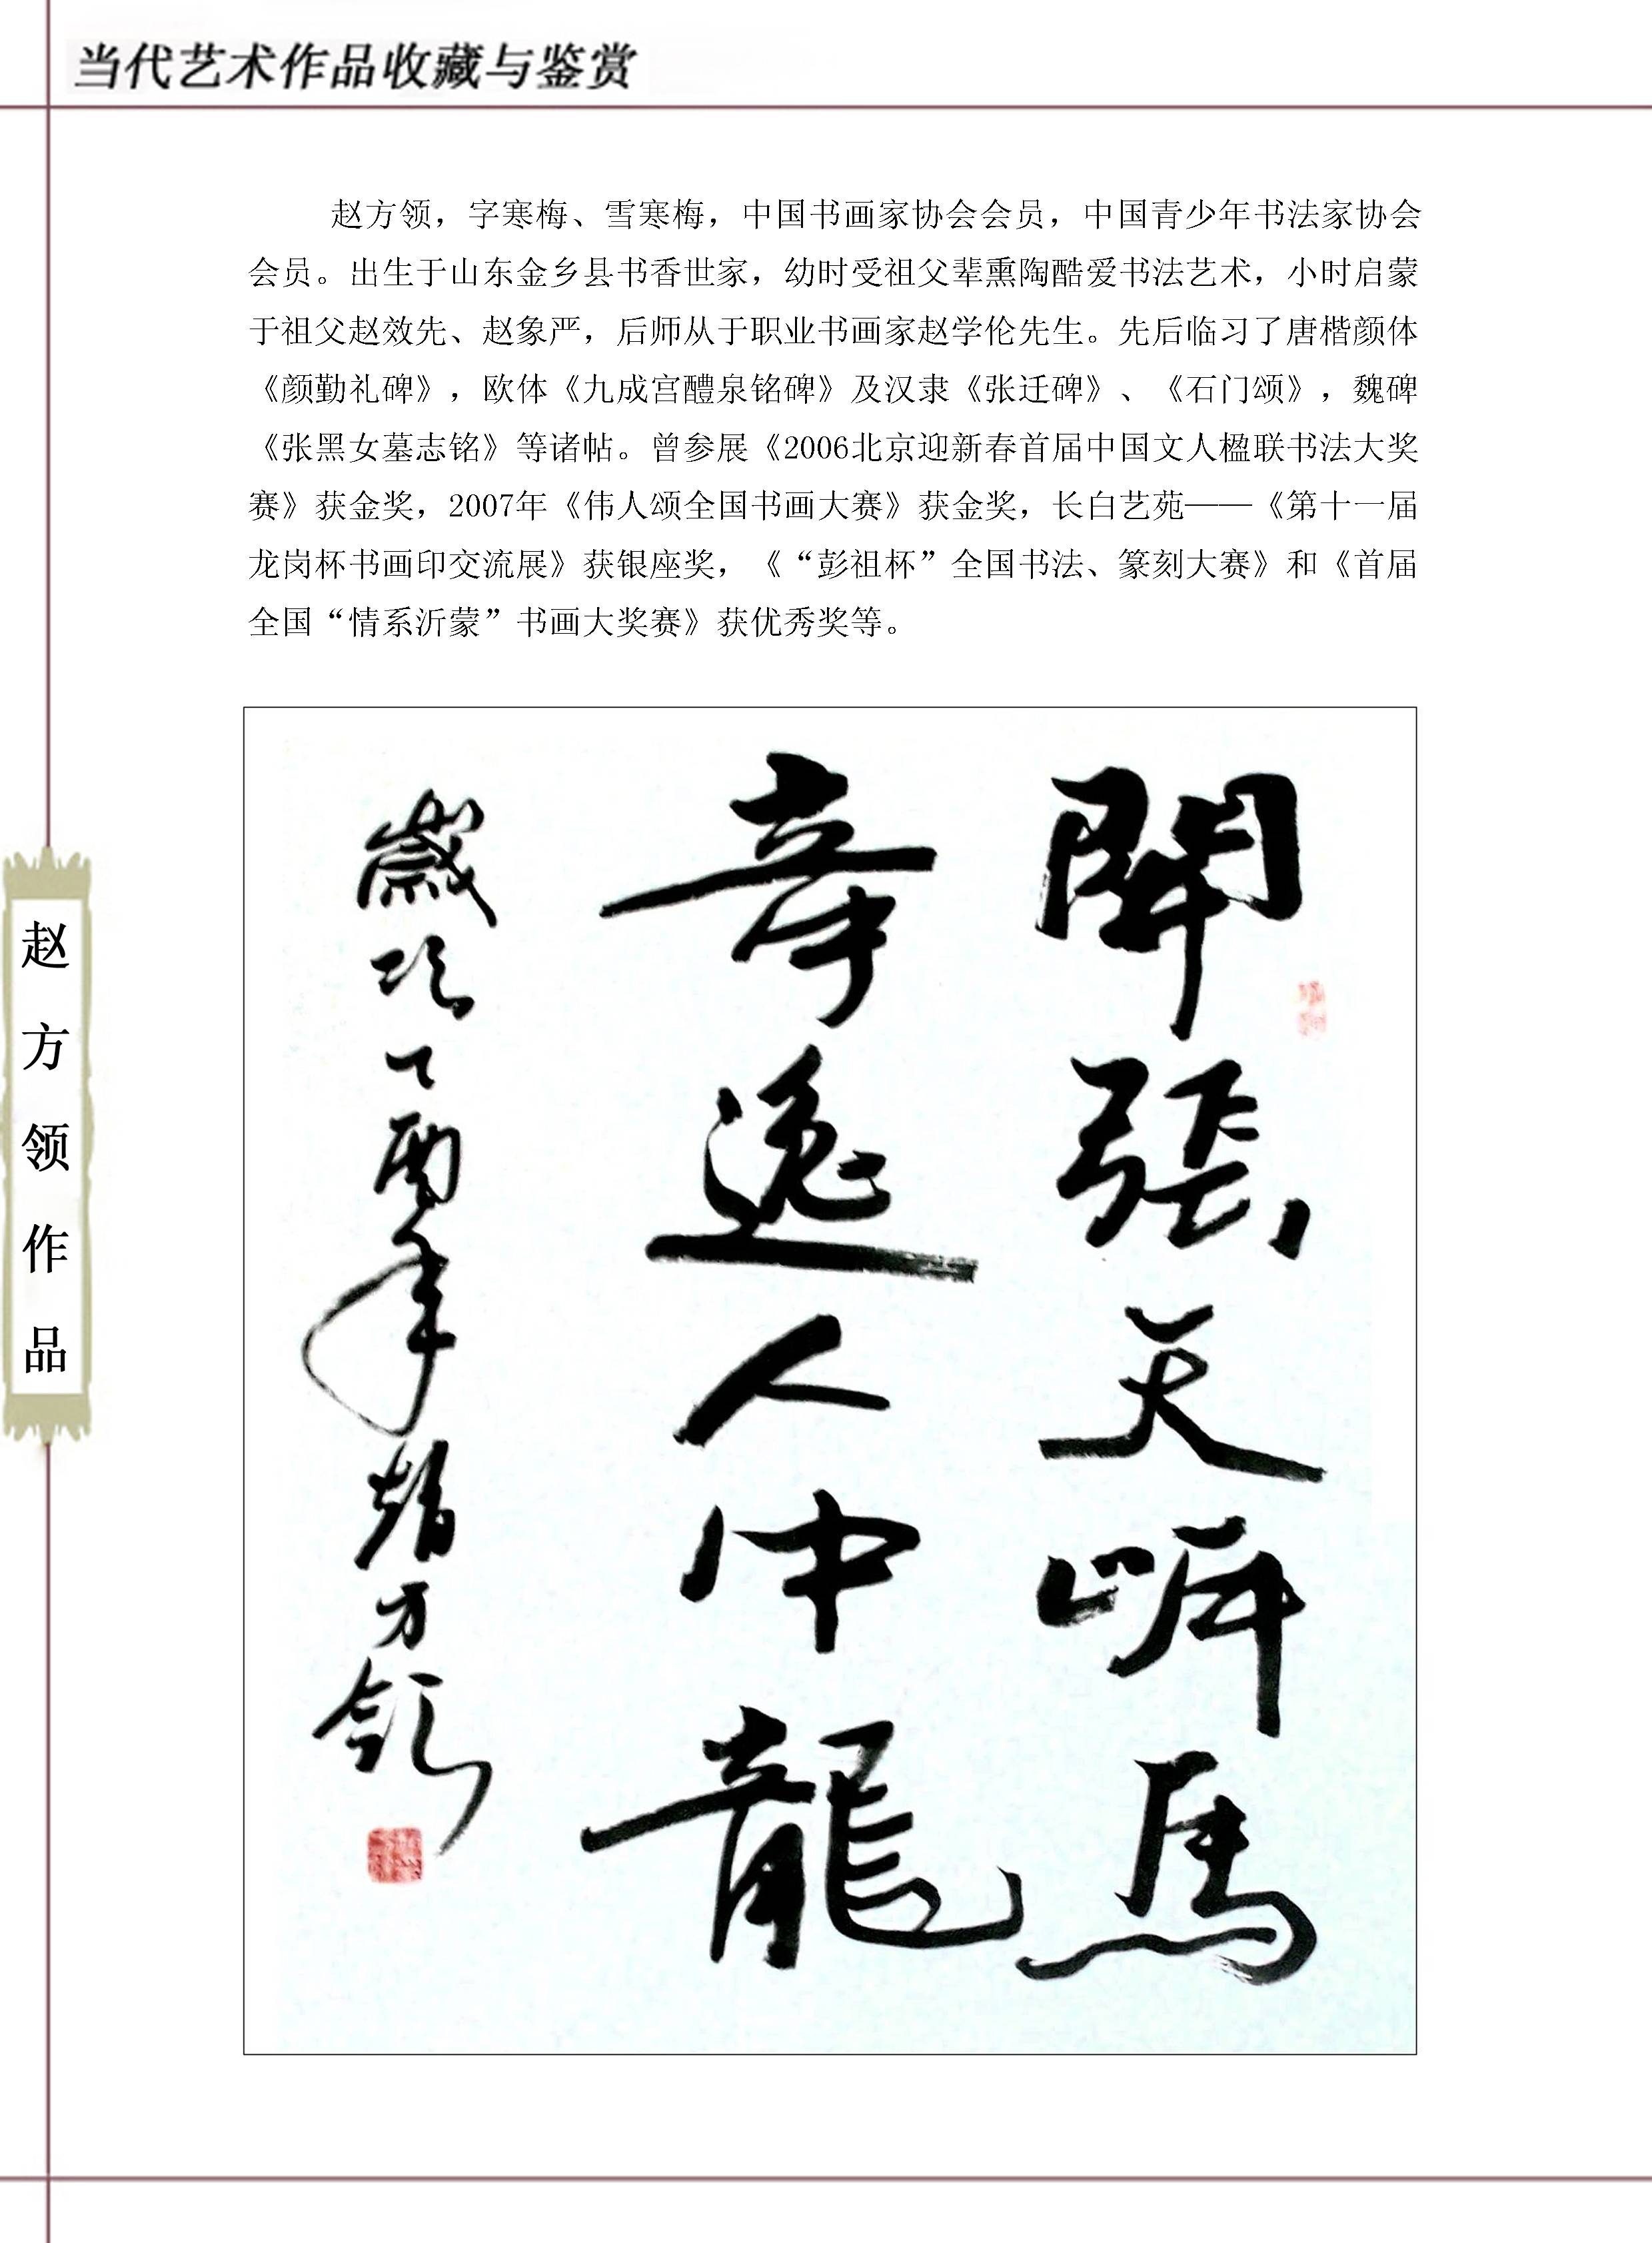 当代艺术作品收藏与鉴赏
赵方领，字寒梅、雪寒梅，中国书画家协会会员，中国青少年书法家协会
会员。出生于山东金乡县书香世家，幼时受祖父辈熏陶酷爱书法艺术，小时启蒙
于祖父赵效先、赵象严，后师从于职业书画家赵学伦先生。先后临习了唐楷颜体
《颜勤礼碑》，欧体《九成宫醴泉铭碑》及汉隶《张迁碑》、《石门颂》，魏碑
《张黑女墓志铭》等诸帖。曾参展《2006北京迎新春首届中国文人楹联书法大奖
赛》获金奖，2007年《伟人颂全国书画大赛》获金奖，长白艺苑——《第十一届
龙岗杯书画印交流展》获银座奖，《“彭祖杯”全国书法、篆刻大赛》和《首届
全国“情系沂蒙”书画大奖赛》获优秀奖等。
開張天岸馬
竒逸人中龍
歲次丁酉年趙方領
赵方领作品